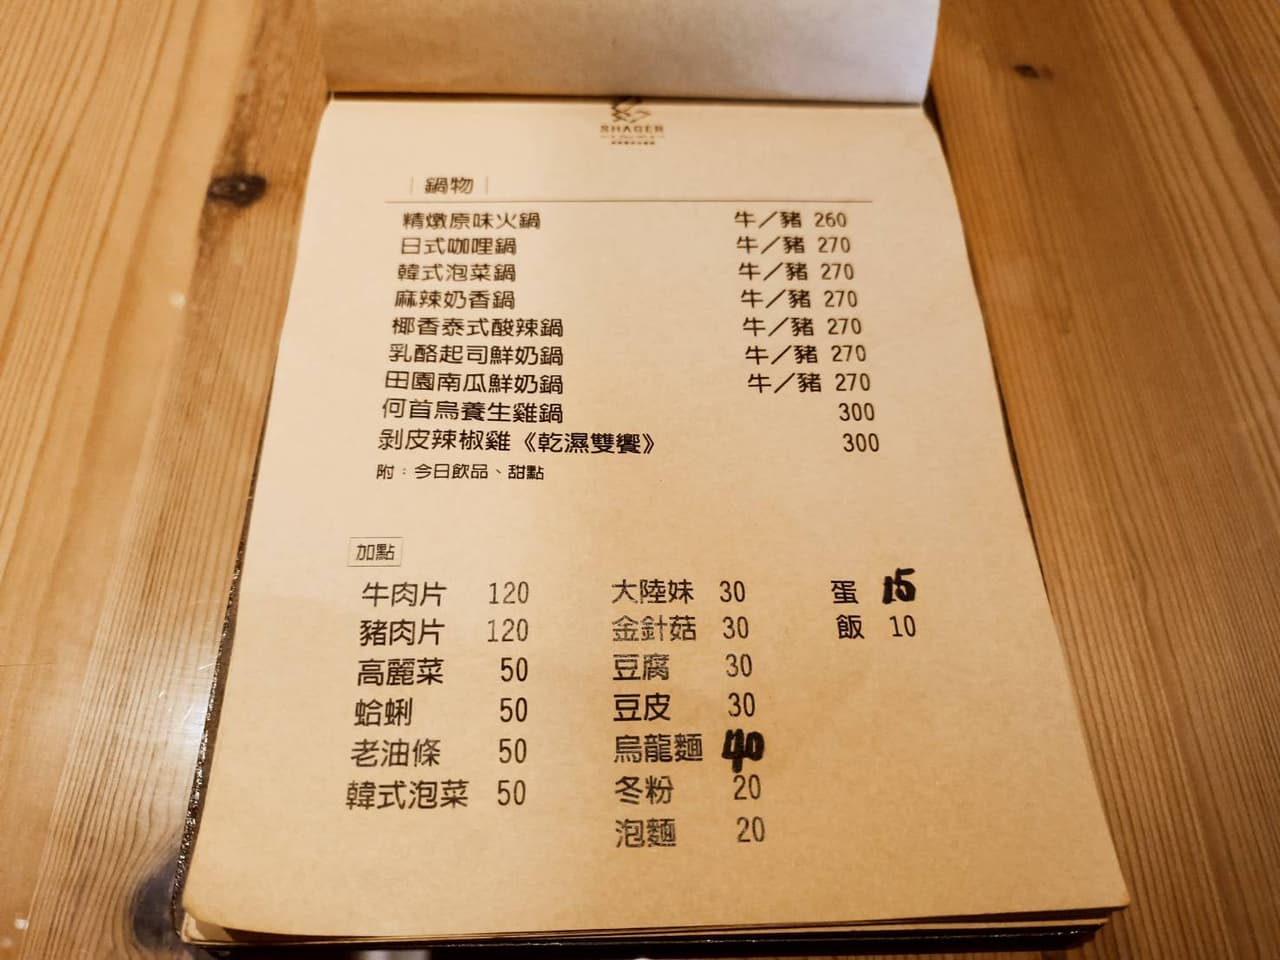 SHAGER
鍋物
精燉原味火鍋 牛／豬 260
日式咖哩鍋 牛／豬 270
韓式泡菜鍋 牛／豬 270
麻辣奶香鍋 牛／豬 270
椰香泰式酸辣鍋 牛／豬 270
乳酪起司鮮奶鍋 牛／豬 270
田園南瓜鮮奶鍋 牛／豬 270
何首烏養生雞鍋 300
剝皮辣椒雞《乾濕雙饗》 300
附：今日飲品、甜點
加點
牛肉片 120 大陸妹 30 蛋 15
豬肉片 120 金針菇 30 飯 10
高麗菜 50 豆腐 30
蛤蜊 50 豆皮 30
老油條 50 烏龍麵 40
韓式泡菜 50 冬粉 20
泡麵 20